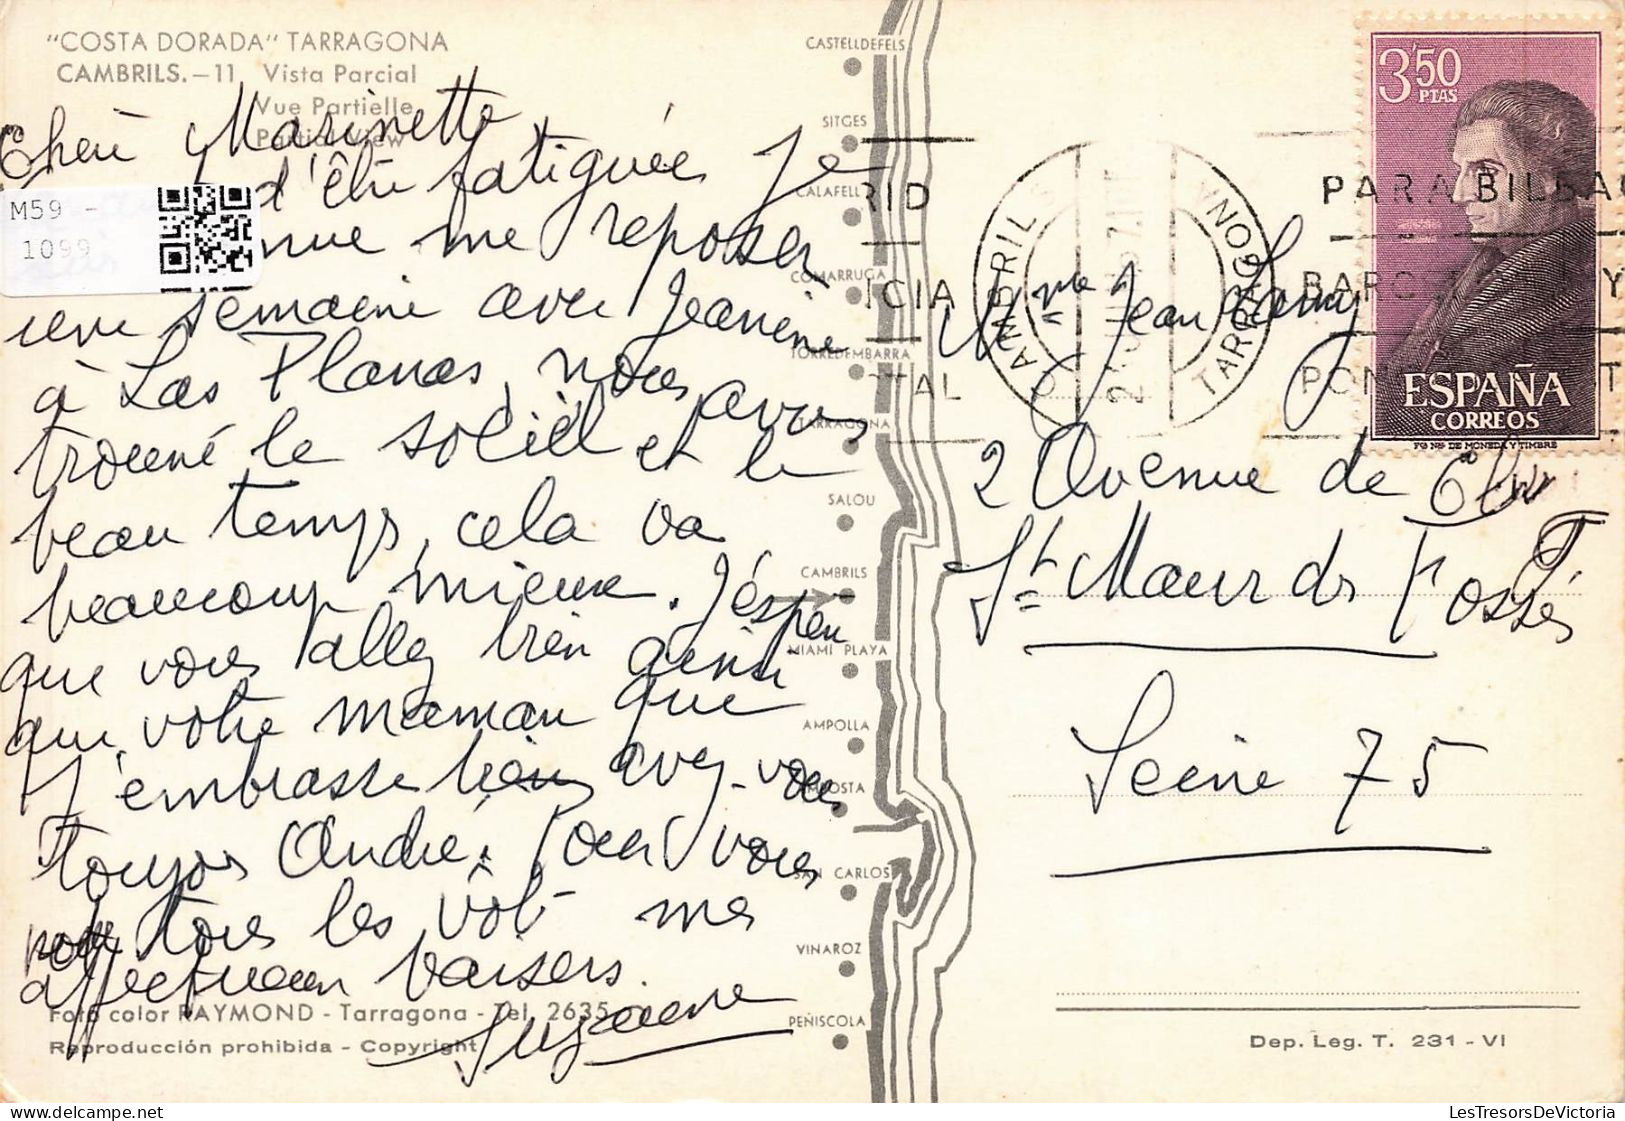 "COSTA DORADA" TARRAGONA
CAMBRILS.-11 Vista Parcial
Vue Partielle
Partial View
Cheri Marinette
d'être fatiguée Je
nue me reposer
une semaine avec Jeanine
à Las Planas, nous avons
trouvé le soleil et le
beau temps, cela va
beaucoup mieux. J'éspère
que vous allez bien ainsi
que votre maman que
J'embrasse bien avez-vous
toujours André. Pour vous
tous les vôt mes
affectueux baisers.
Suzanne
Foto color RAYMOND - Tarragona - Tel. 2635
Reproducción prohibida - Copyright
M59 -
1099
CASTELLDEFELS
SITGES
CALAFELL
COMARRUGA
TORREDEMBARRA
TARRAGONA
SALOU
CAMBRILS
MIAMI PLAYA
AMPOLLA
AMPOSTA
SAN CARLOS
VINAROZ
PEÑISCOLA
RID
ICIA
TAL
CAMBRIL
TARRAGONA
PARA BILBAO
BARC
PON
3'50
PTAS
ESPAÑA
CORREOS
F. N. DE MONEDA Y TIMBRE
Mme Jean
2 Avenue de
St Maur ds Fossés
Seine 75
Dep. Leg. T. 231 - VI
LesTresorsDeVictoria